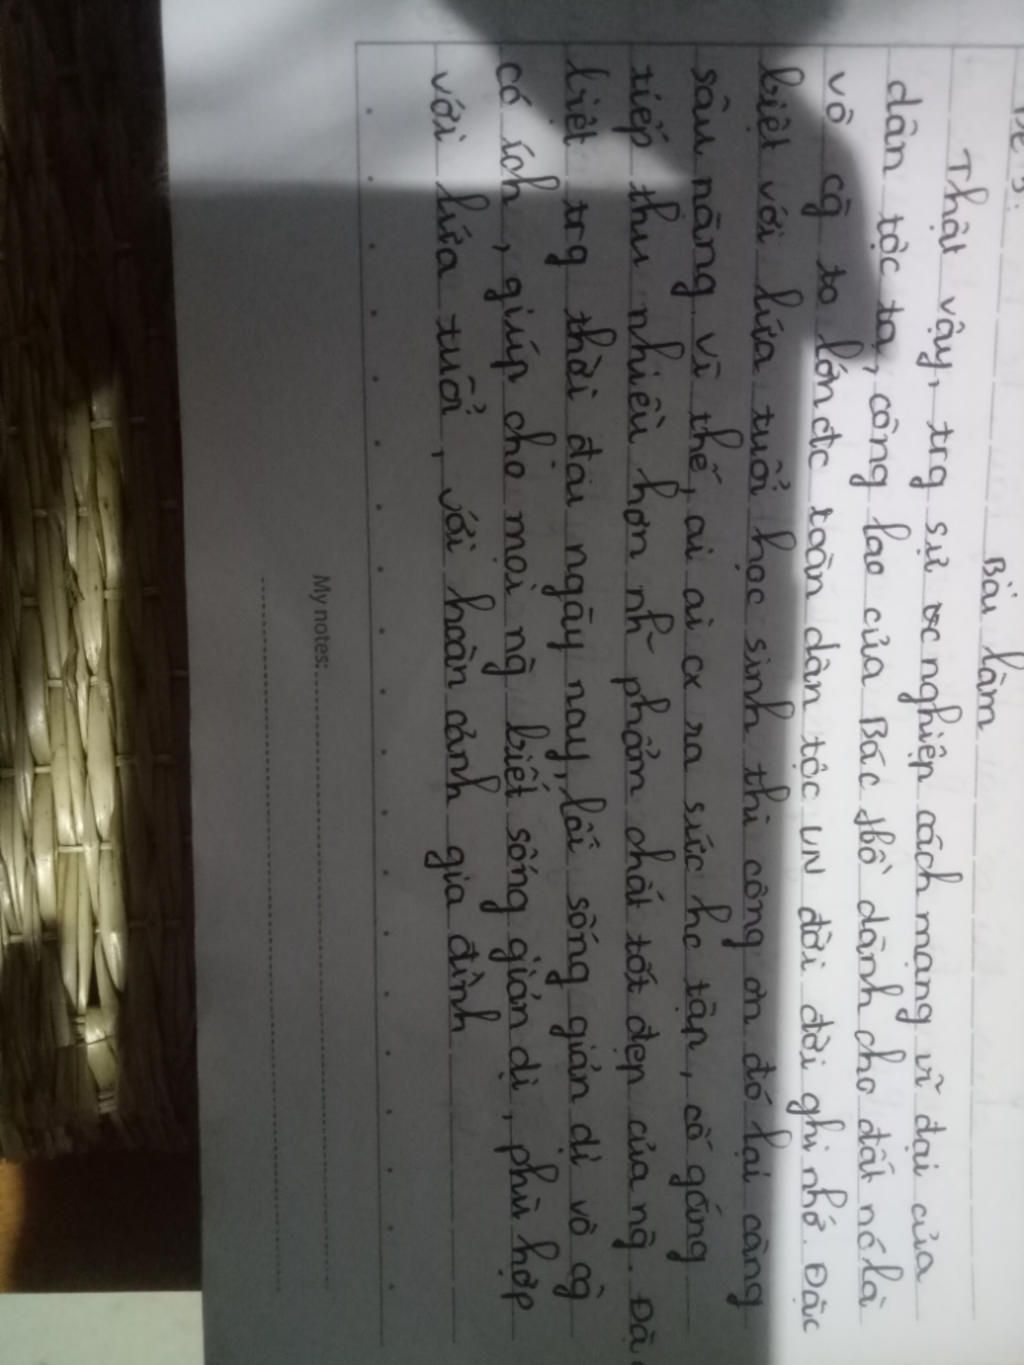 Bài làm
Thật vậy, trg sự nghiệp cách mạng vĩ đại của
dân tộc ta, công lao của Bác Hồ dành cho đất nc là
vô cg to lớn đc toàn dân tộc VN đời đời ghi nhớ. Đặc
biệt với lứa tuổi học sinh thì công ơn đó lại càng
sâu nặng. vì thế, ai ai cx ra sức hc tập, cố gắng
tiếp thu nhiều hơn nh~ phẩm chất tốt đẹp của ng. Đặ
biệt trg thời đại ngày nay, lối sống giản dị vô cg
có ích, giúp cho mọi ng biết sống giản dị, phù hợp
với lứa tuổi, với hoàn cảnh gia đình
My notes: